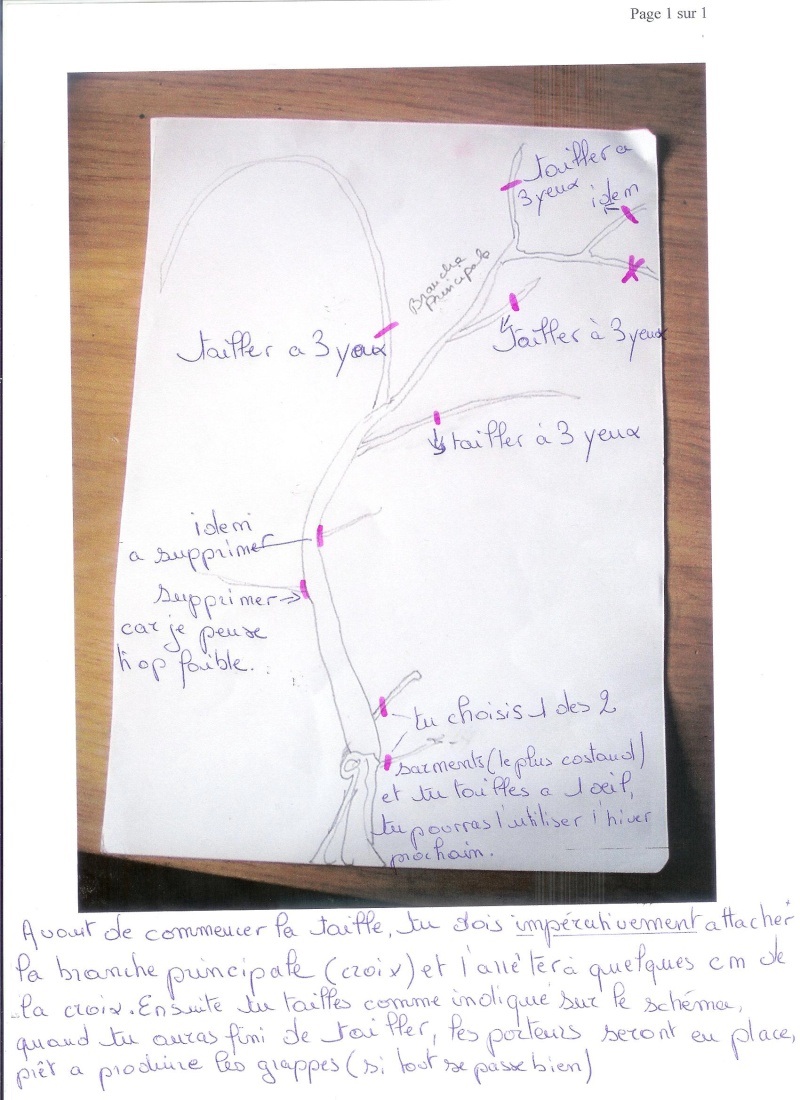 Page 1 sur 1
tailler a
3 yeux
idem
Branche
principale
tailler a 3 yeux
Tailler à 3 yeux
tailler à 3 yeux
idem
a supprimer
supprimer
car je pense
trop faible.
tu choisis 1 des 2
sarments (le plus costaud)
et tu tailles a 1 oeil,
tu pourras l'utiliser l'hiver
prochain.
Avant de commencer la taille, tu dois impérativement attacher
la branche principale (croix) et l'arrêter à quelques cm de
la croix. Ensuite tu tailles comme indiqué sur le schéma,
quand tu auras fini de tailler, les porteurs seront en place,
prêt a produire les grappes (si tout se passe bien)